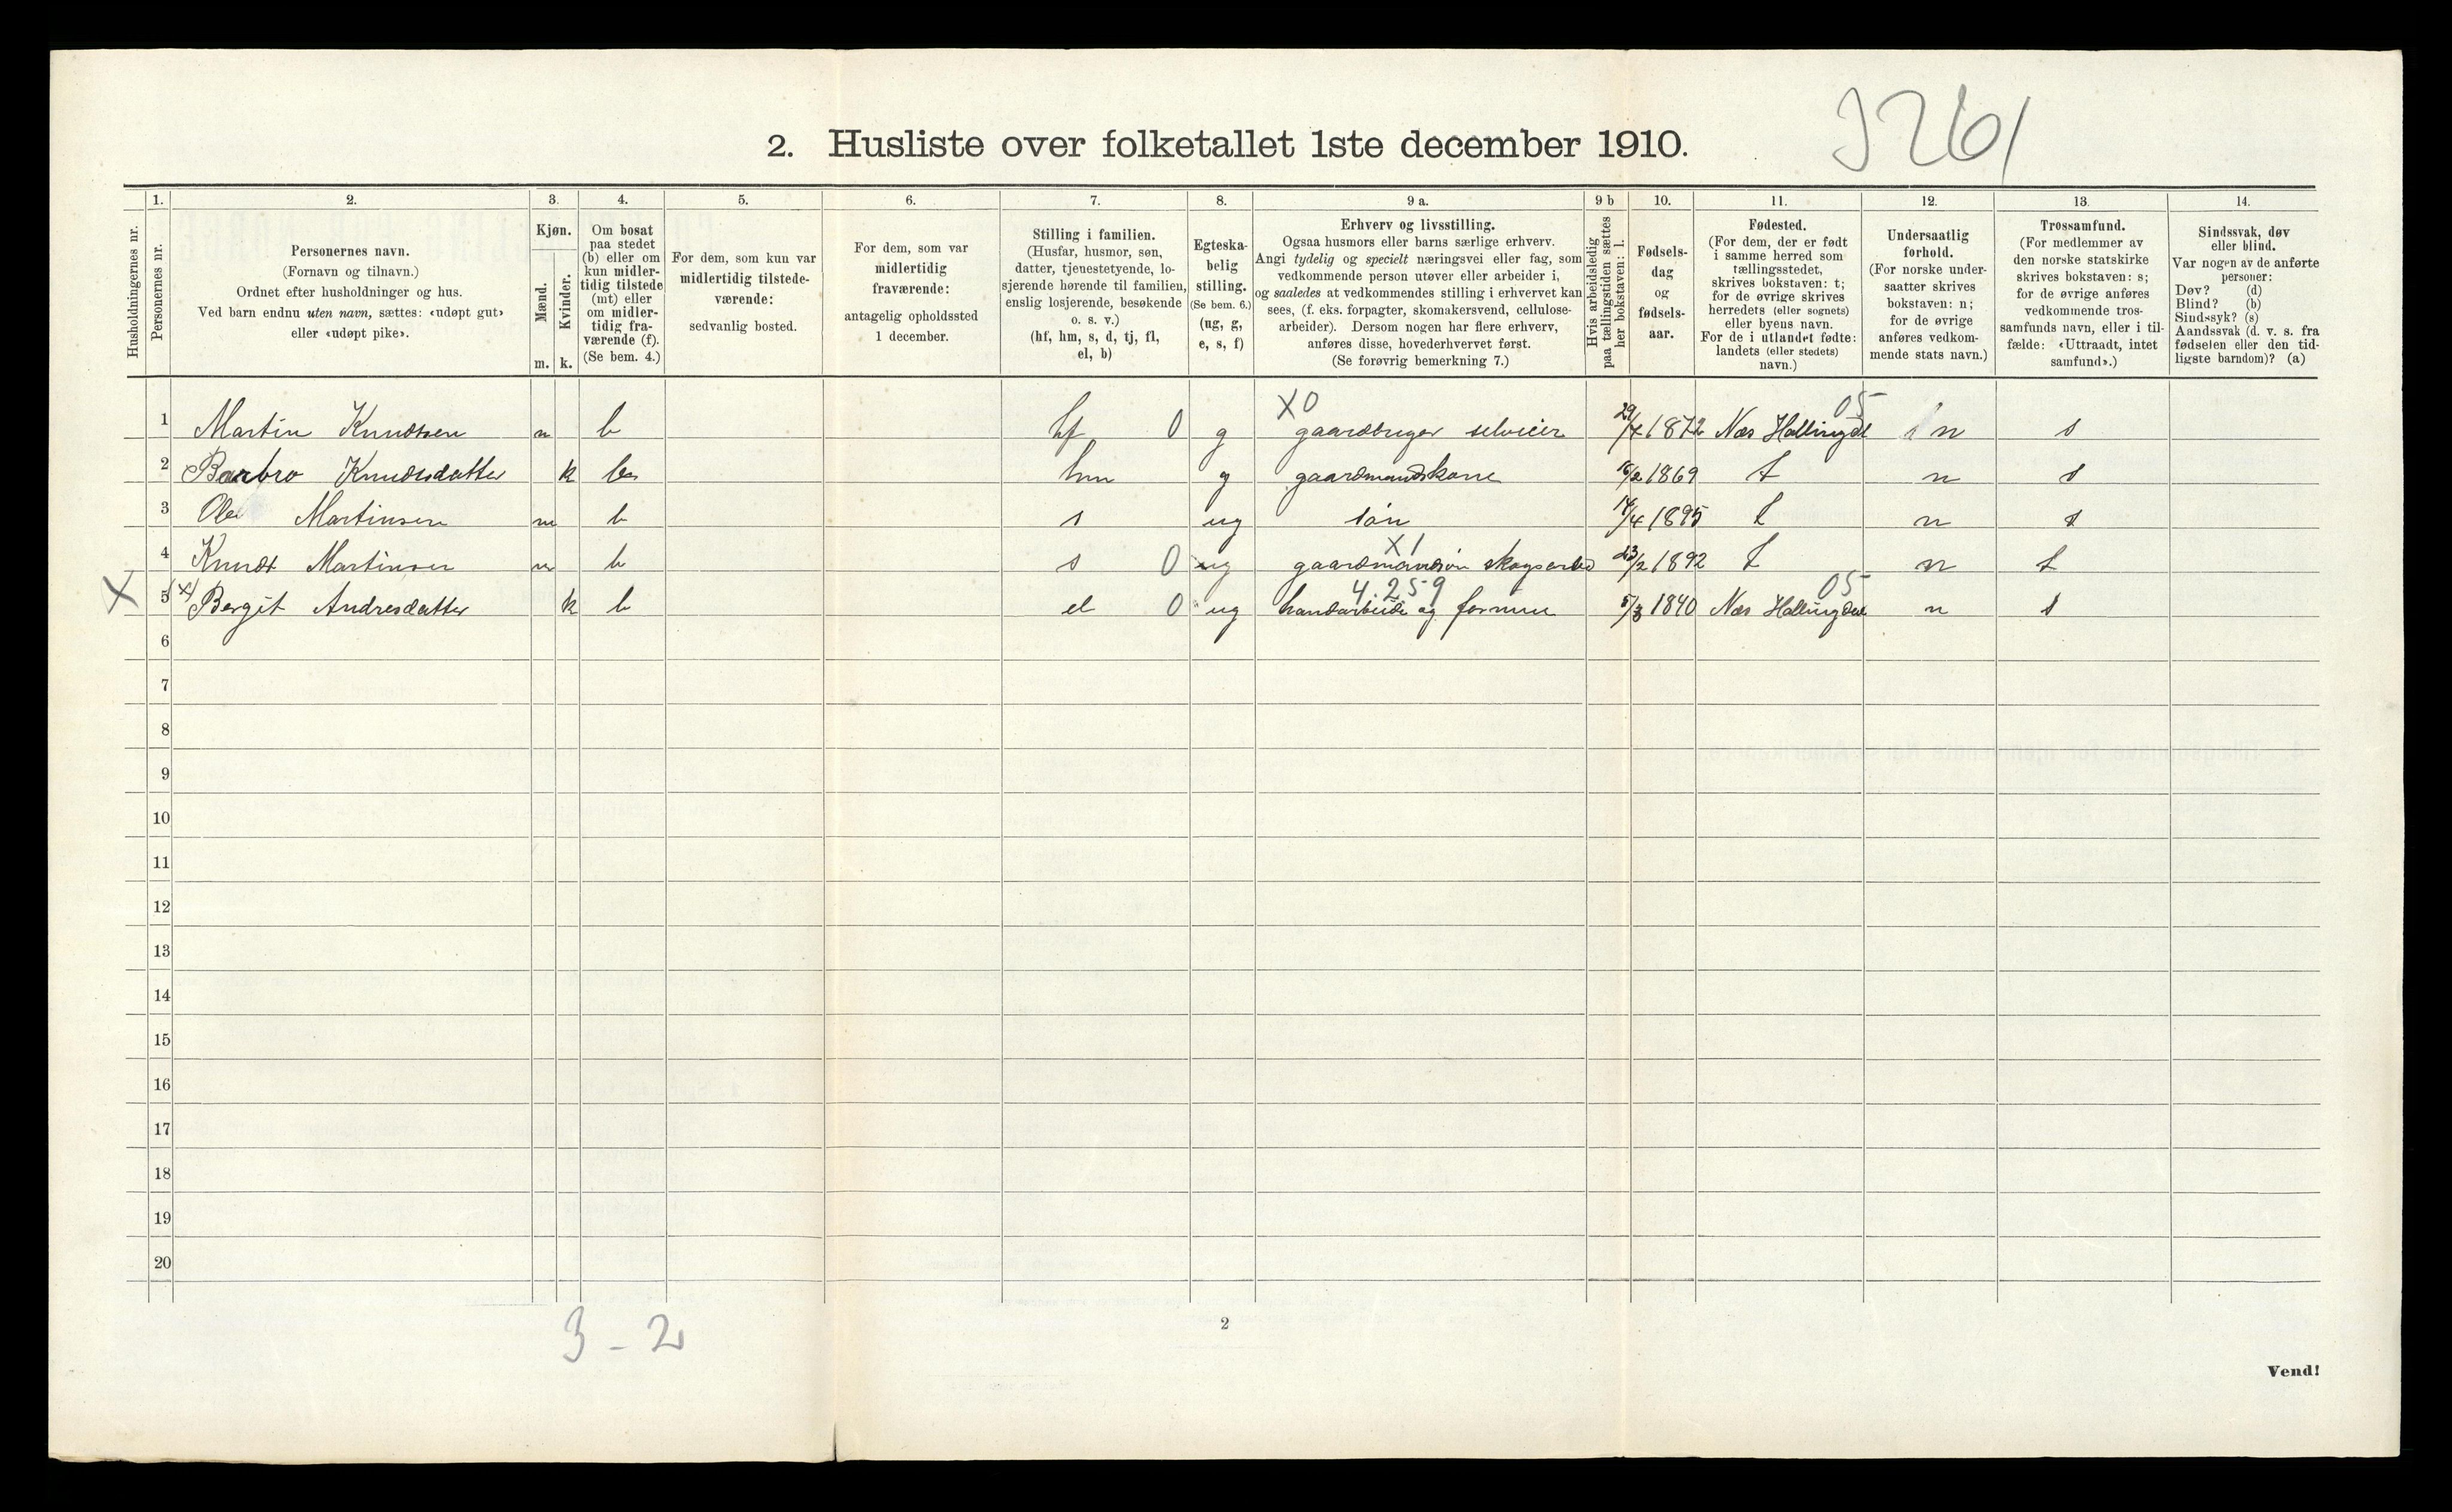 3261
2. Husliste over folketallet 1ste december 1910.
Husholdningernes nr.
1.
Personernes nr.
2.
Personernes navn.
(Fornavn og tilnavn.)
Ordnet efter husholdninger og hus.
Ved barn endnu uten navn, sættes: «udøpt gut»
eller «udøpt pike».
3.
Kjøn.
Mænd.
Kvinder.
m. k.
4.
Om bosat
paa stedet
(b) eller om
kun midler-
tidig tilstede
(mt) eller
om midler-
tidig fra-
værende (f).
(Se bem. 4.)
5.
For dem, som kun var
midlertidig tilstede-
værende:
sedvanlig bosted.
6.
For dem, som var
midlertidig
fraværende:
antagelig opholdssted
1 december.
7.
Stilling i familien.
(Husfar, husmor, søn,
datter, tjenestetyende, lo-
sjerende hørende til familien,
enslig losjerende, besøkende
o. s. v.)
(hf, hm, s, d, tj, fl,
el, b)
8.
Egteska-
belig
stilling.
(Se bem. 6.)
(ug, g,
e, s, f)
9 a.
Erhverv og livsstilling.
Ogsaa husmors eller barns særlige erhverv.
Angi tydelig og specielt næringsvei eller fag, som
vedkommende person utøver eller arbeider i,
og saaledes at vedkommendes stilling i erhvervet kan
sees, (f. eks. forpagter, skomakersvend, cellulose-
arbeider). Dersom nogen har flere erhverv,
anføres disse, hovederhvervet først.
(Se forøvrig bemerkning 7.)
9 b
Hvis arbeidsledig
paa tællingstiden sættes
her bokstaven: l.
10.
Fødsels-
dag
og
fødsels-
aar.
11.
Fødested.
(For dem, der er født
i samme herred som
tællingsstedet,
skrives bokstaven: t;
for de øvrige skrives
herredets (eller sognets)
eller byens navn.
For de i utlandet fødte:
landets (eller stedets)
navn.)
12.
Undersaatlig
forhold.
(For norske under-
saatter skrives
bokstaven: n;
for de øvrige
anføres vedkom-
mende stats navn.)
13.
Trossamfund.
(For medlemmer av
den norske statskirke
skrives bokstaven: s;
for de øvrige anføres
vedkommende tros-
samfunds navn, eller i til-
fælde: «Uttraadt, intet
samfund».)
14.
Sindssvak, døv
eller blind.
Var nogen av de anførte
personer:
Døv? (d)
Blind? (b)
Sindssyk? (s)
Aandssvak (d. v. s. fra
fødselen eller den tid-
ligste barndom)? (a)
X0 05
1 Martin Knudtsen m b hf 0 g gaardbruger selveier 29/4 1872 Næs Hallingdal n s
2 Barbro Knudsdatter k b hm g gaardmandskone 16/2 1869 t n s
3 Ole Martinsen m b s ug søn 14/4 1895 t n s
X1
4 Knudt Martinsen m b s 0 ug gaardmandsøn skogsarbed 23/2 1892 t n s
4.259 05
X 5 x) Bergit Andresdatter k b el 0 ug handarbeide og formue 5/3 1840 Næs Hallingdal n s
6
7
8
9
10
11
12
13
14
15
16
17
18
19
20
3 - 2
2
Vend!